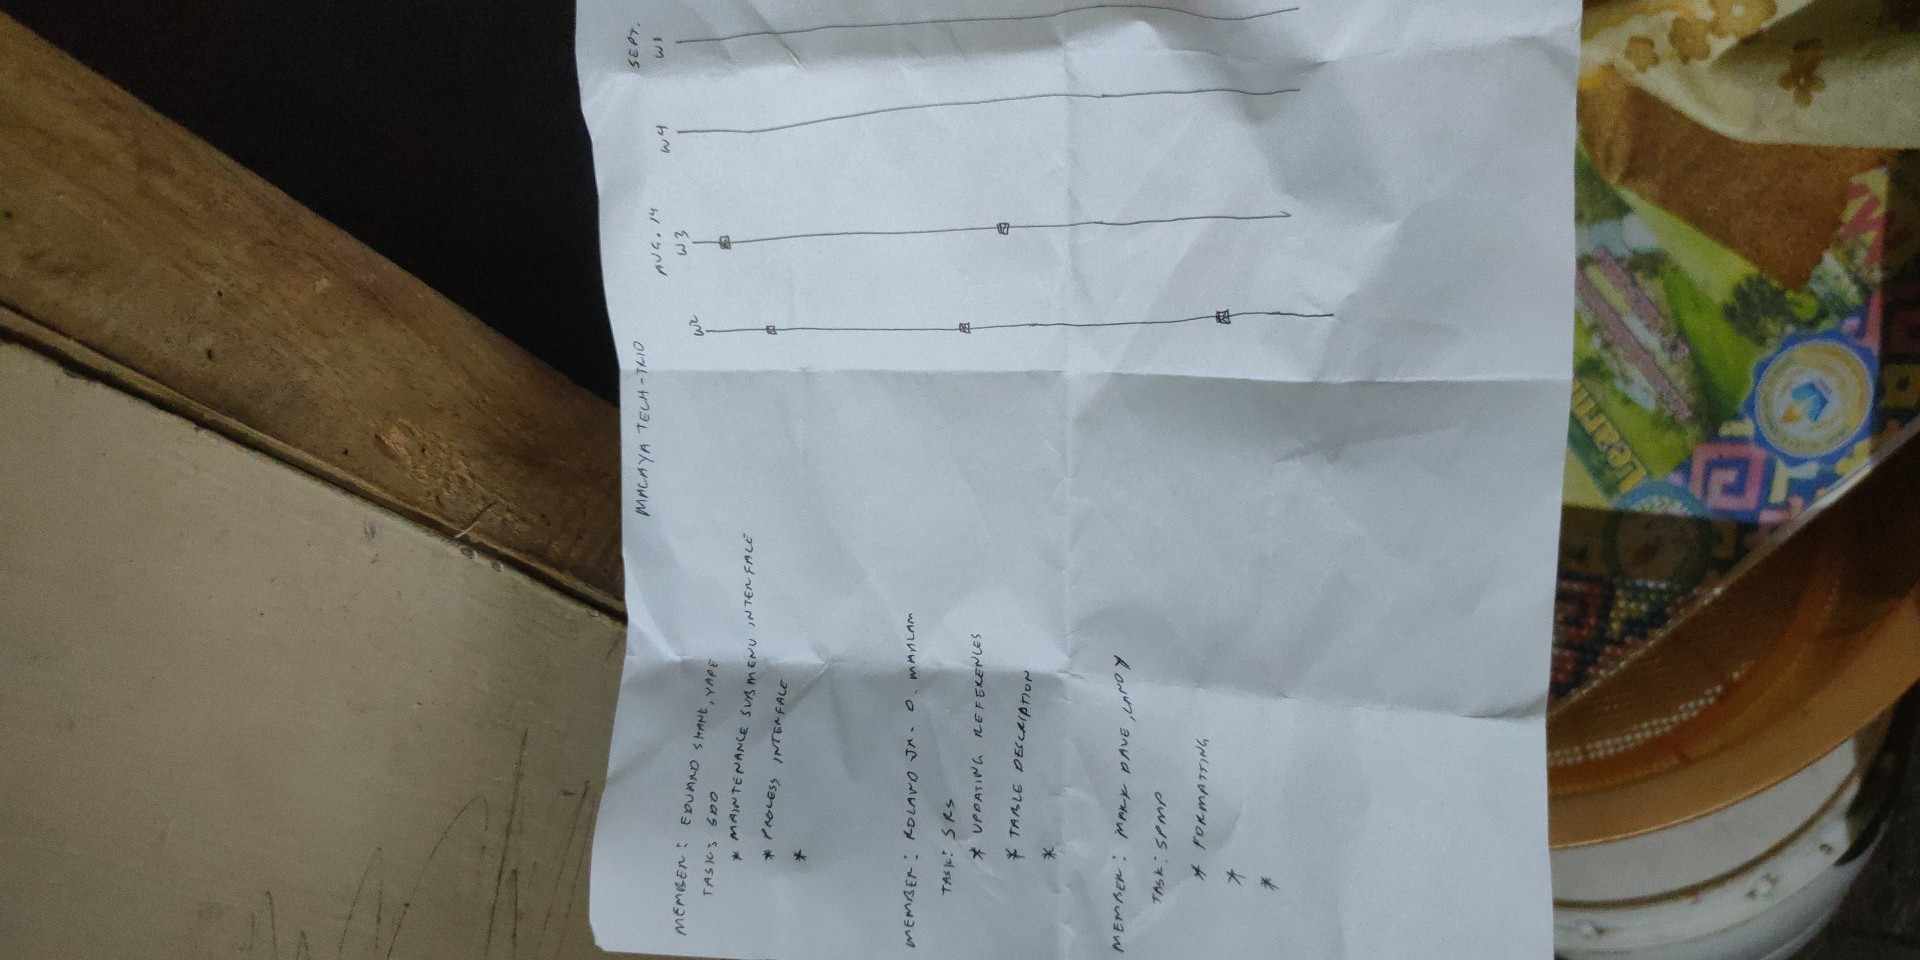 MALAYA TECH-TRIO
SEPT.
AUG. 14
W2 W3 W4 W1
MEMBER: EDUARD SHANE, YAPE
TASK: SDD
* MAINTENANCE SUBMENU INTERFACE
* PROCESS INTERFACE
*
MEMBER: ROLAND JR. O. MAALAM
TASK: SRS
* UPDATING REFERENCES
* TABLE DESCRIPTION
*
MEMBER: MARK DAVE, LANOY
TASK: SPMP
* FORMATTING
*
*
Learn